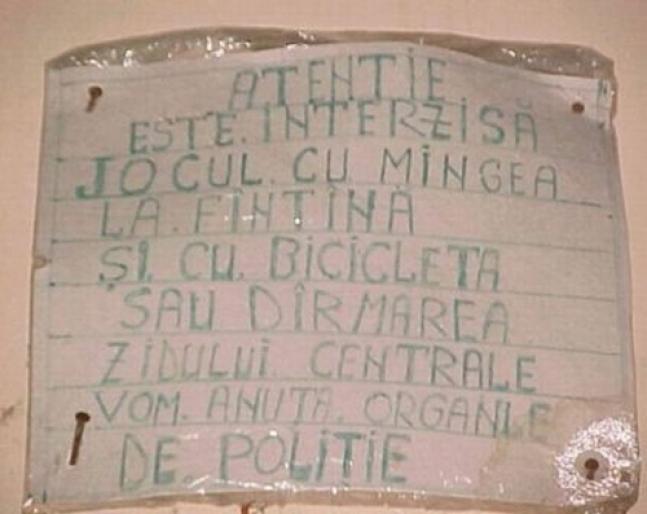 ATENTIE
ESTE. INTERZISĂ
JOCUL. CU MINGEA
LA. FINTINA
ȘI. CU. BICICLETA
SAU DÎRMAREA
ZIDULUI. CENTRALE
VOM. ANUTA. ORGANLE
DE. POLITIE